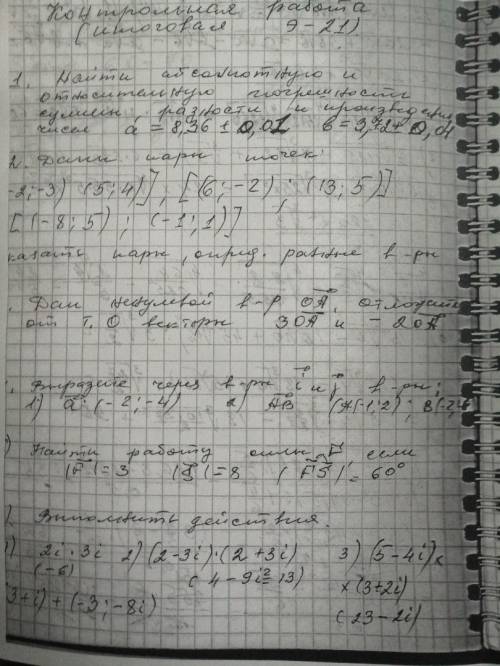 Контрольная работа
(итоговая 9-21)
1. Найти абсолютную и
относительную погрешность
суммы, разности и произведения
чисел a = 8,36 ± 0,01 в = 3,72 ± 0,04
2. Даны пары точек:
-2;-3) (5;4)]; [(6;-2); (13;5)]
[(-8;5); (-1;1)]
казать пары, опред. равные в-ры
. Дан ненулевой в-р OA, отложить
от т. О векторы 3OA и -2OA
. Выразите через в-ры i и j в-ры:
1) a (-2;-4) 2) AB (A(-1;2);
) Найти работу силы F, если
|F| = 3 |S| = 8 (FS) = 60°
. Выполнить действия.
1) 2i · 3i 2) (2-3i)·(2+3i) 3) (5-4i)×
(-6) (4-9i²=13) ×(3+2i)
3+i)+(-3;-8i) (23-2i)